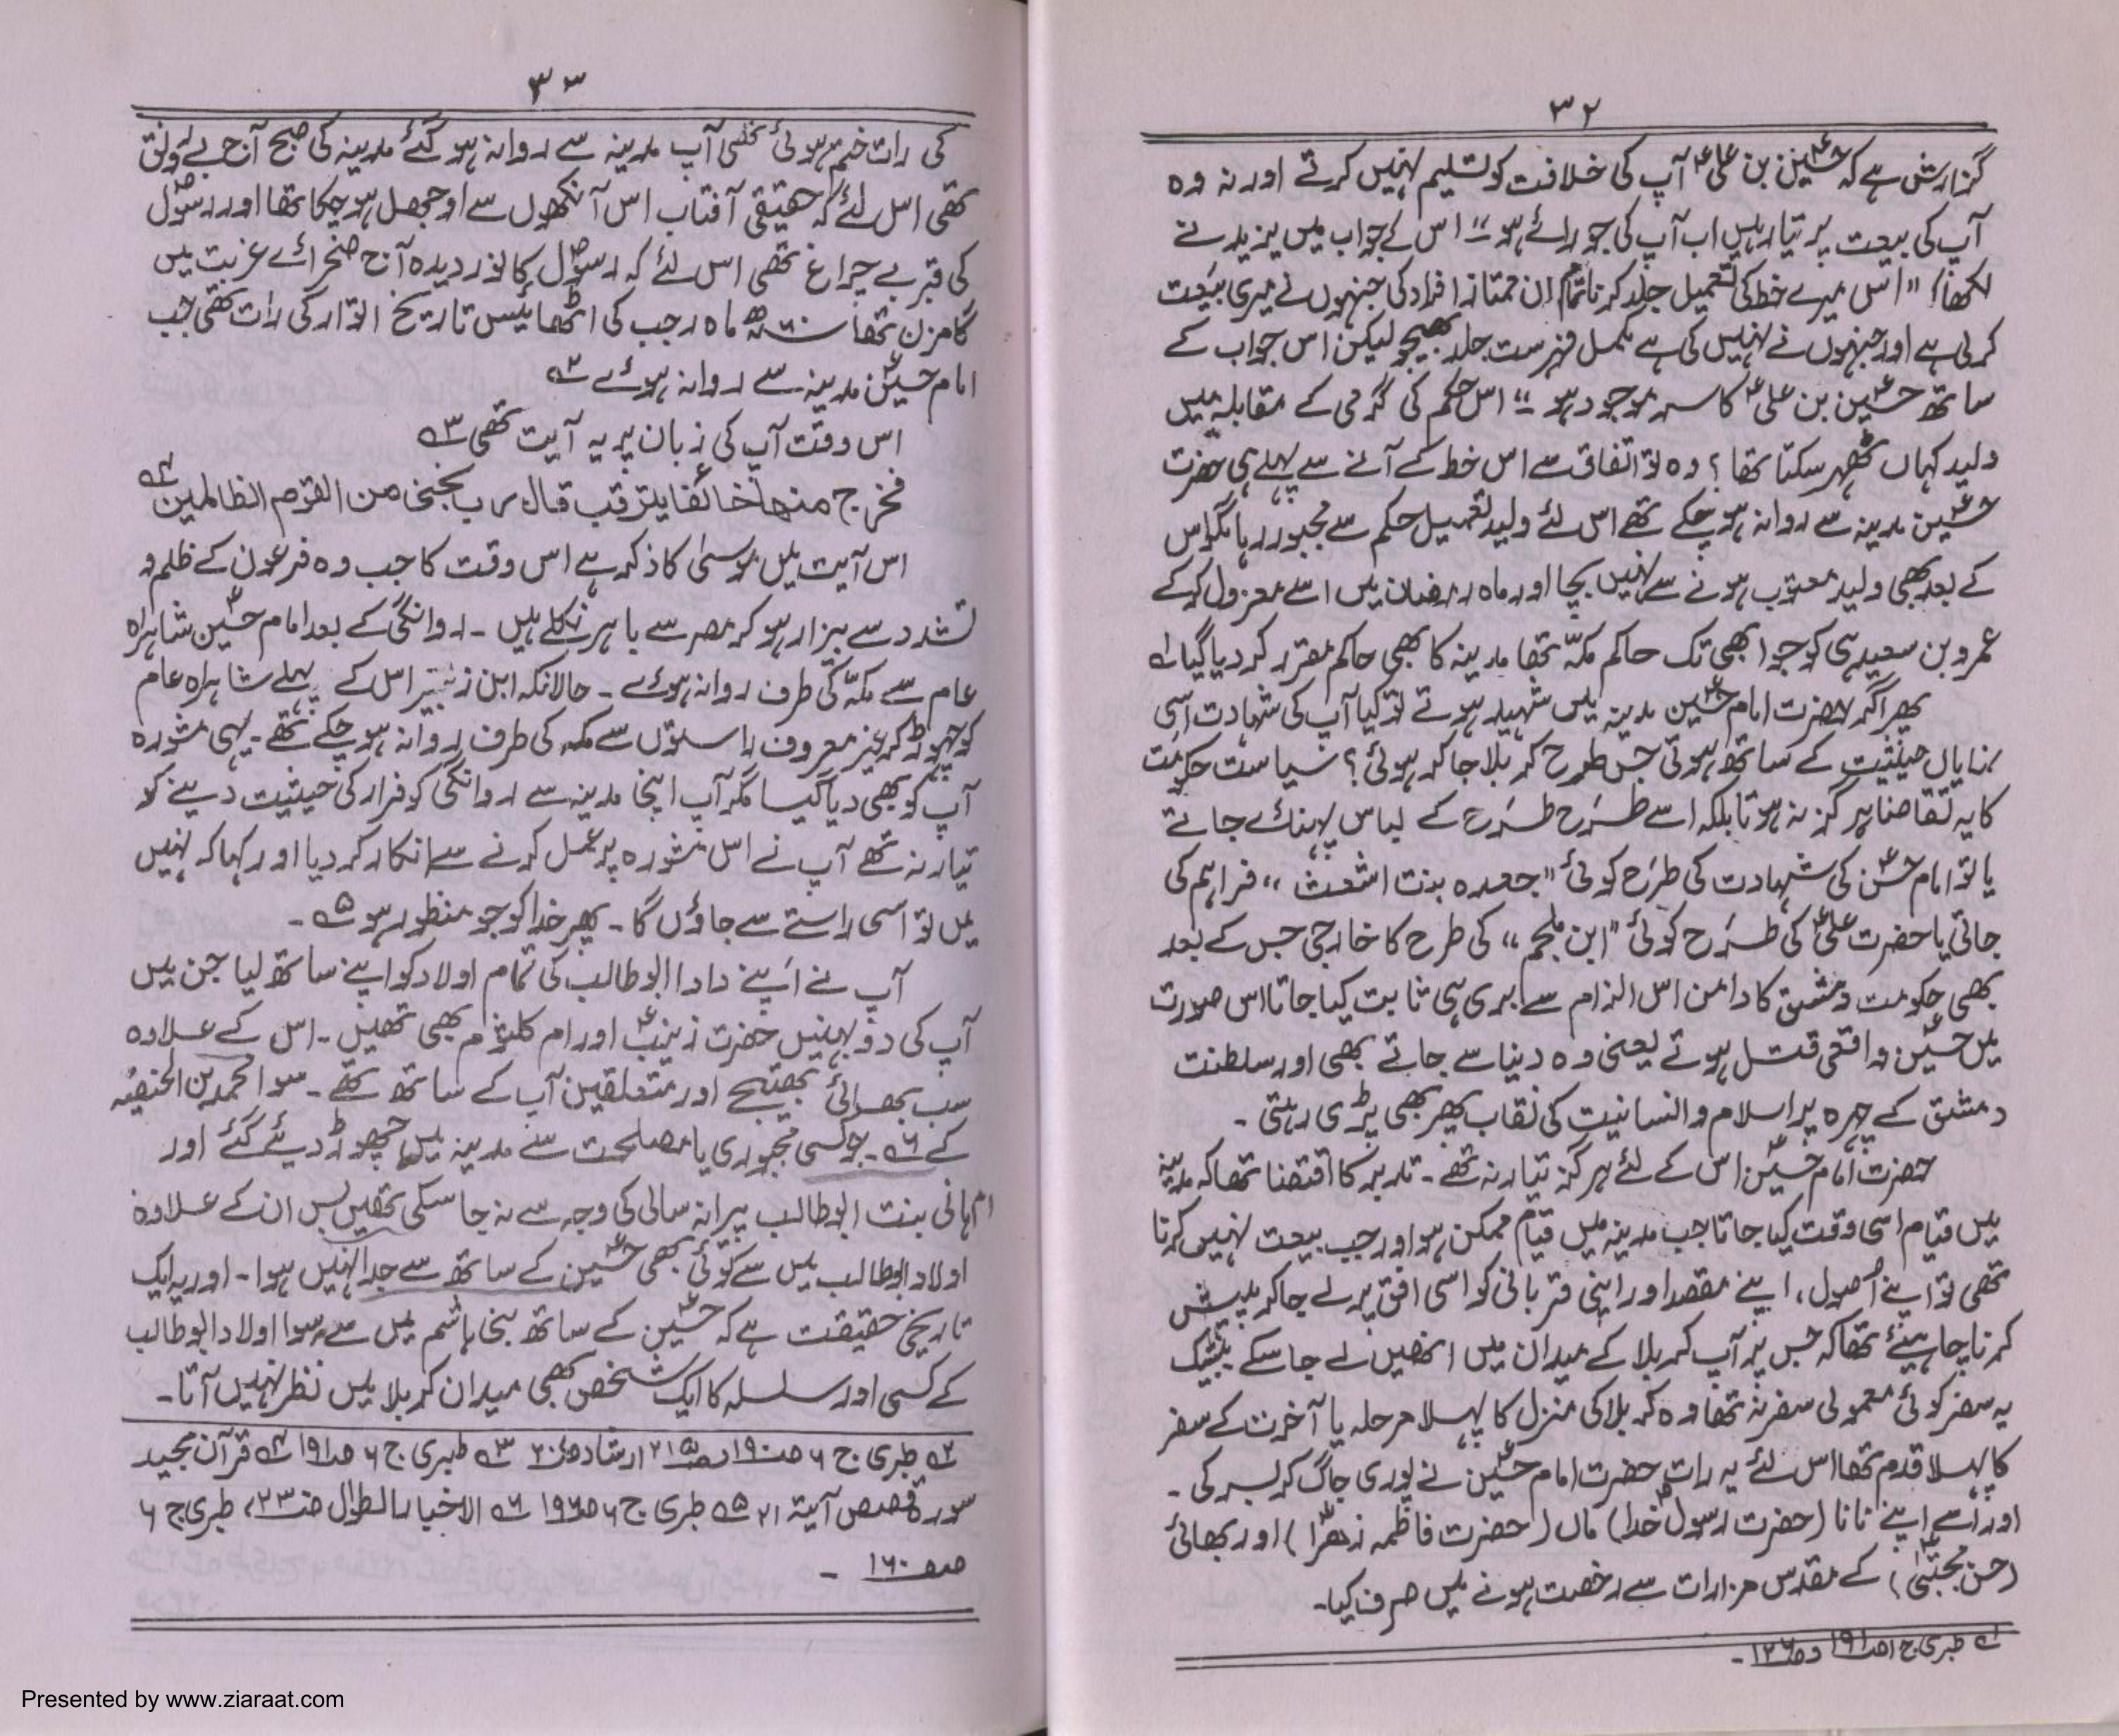 ۳۲
گزارش ہے کہ حسینؑ بن علیؑ آپ کی خلافت کو تسلیم نہیں کرتے اور نہ وہ
آپ کی بیعت پر تیار ہیں اب آپ کی جو رائے ہو“ اس کے جواب میں یزید نے
لکھا! ”اس میرے خط کی تعمیل جلد کرنا تمام ان ممتاز افراد کی جنہوں نے میری بیعت
کرلی ہے اور جنہوں نے نہیں کی ہے مکمل فہرست جلد بھیجو لیکن اس جواب کے
ساتھ حسینؑ بن علیؑ کا سر موجود ہو“ اس حکم کی گرمی کے مقابلہ میں
ولید کہاں ٹھہر سکتا تھا؟ وہ تو اتفاق سے اس خط کے آنے سے پہلے ہی حضرت
حسینؑ مدینہ سے روانہ ہو چکے تھے اس لئے ولید تعمیل حکم سے مجبور رہا مگر اس
کے بعد بھی ولید معتوب ہونے سے نہیں بچا اور ماہ رمضان میں اسے معزول کر کے
عمرو بن سعید ہی کو جو ابھی تک حاکم مکہّ تھا مدینہ کا بھی حاکم مقرر کر دیا گیا ؎۱
پھر اگر حضرت امام حسینؑ مدینہ میں شہید ہوتے تو کیا آپ کی شہادت اسی
نمایاں حیثیت کے ساتھ ہوتی جس طرح کربلا جا کر ہوئی؟ سیاست حکومت
کا یہ تقاضا ہرگز نہ ہوتا بلکہ اسے طرَح طرَح کے لباس پہنائے جاتے
یا تو امام حسنؑ کی شہادت کی طرَح کوئی ”جعدہ بنت اشعث“ فراہم کی
جاتی یا حضرت علیؑ کی طرَح کوئی ”ابن ملجم“ کی طرح کا خارجی جس کے بعد
بھی حکومت دمشق کا دامن اس الزام سے بری ہی ثابت کیا جاتا اس صورت
میں حسینؑ واقعی قتل ہوتے یعنی وہ دنیا سے جاتے بھی اور سلطنت
دمشق کے چہرہ پر اسلام و انسانیت کی نقاب پھر بھی پڑی رہتی۔
حضرت امام حسینؑ اس کے لئے ہرگز تیار نہ تھے۔ تدبر کا اقتضا تھا کہ مدینہ
میں قیام اسی وقت کیا جاتا جب مدینہ میں قیام ممکن ہو اور جب بیعت نہیں کرنا
تھی تو اپنے اُصول، اپنے مقصد اور اپنی قربانی کو اسی افق پر لے جا کر پیش
کرنا چاہیئے تھا کہ جس پر آپ کربلا کے میدان میں انھیں لے جا سکے بیشک
یہ سفر کوئی معمولی سفر نہ تھا وہ کربلا کی منزل کا پہلا مرحلہ یا آخرت کے سفر
کا پہلا قدم تھا اس لئے یہ رات حضرت امام حسینؑ نے پوری جاگ کر بسر کی۔
اور اُسے اپنے نانا (حضرت رسولؐ خدا) ماں (حضرت فاطمہ زھراؑ) اور بھائی
(حسن مجتبیٰؑ) کے مقدس مزارات سے رخصت ہونے میں صرف کیا۔
؎۱ طبری ج ۶ صـ۱۹۱
۳۳
کی رات ختم ہوئی تھی آپ مدینہ سے روانہ ہو گئے مدینہ کی صبح آج بے رونق
تھی اس لئے کہ حقیقی آفتاب اس آنکھوں سے اوجھل ہو چکا تھا اور رسولؐ
کی قبر بے چراغ تھی اس لئے کہ رسولؐ کا نور دیدہ آج صحرائے غربت میں
گامزن تھا سنہ ۶۰ھ ماہ رجب کی اٹھائیس تاریخ اتوار کی رات تھی جب
امام حسینؑ مدینہ سے روانہ ہوئے ؎۲
اس وقت آپ کی زبان پر یہ آیت تھی ؎۳
فخرج منھا خائفا یترقب قال رب نجنی من القوم الظالمین ؎۴
اس آیت میں موسیٰ کا ذکر ہے اس وقت کا جب وہ فرعون کے ظلم و
تشدد سے بیزار ہو کر مصر سے باہر نکلے ہیں۔ روانگی کے بعد امام حسینؑ شاہراہ
عام سے مکہّ کی طرف روانہ ہوئے۔ حالانکہ ابن زبیر اس کے پہلے شاہراہ عام
کو چھوڑ کر غیر معروف راستوں سے مکہ کی طرف روانہ ہو چکے تھے۔ یہی مشورہ
آپ کو بھی دیا گیا مگر آپ اپنی مدینہ سے روانگی کو فرار کی حیثیت دینے کو
تیار نہ تھے آپ نے اس مشورہ پر عمل کرنے سے انکار کر دیا اور کہا کہ نہیں
میں تو اسی راستے سے جاؤں گا۔ پھر خدا کو جو منظور ہو ؎۵۔
آپ نے اَپنے دادا ابو طالب کی تمام اولاد کو اپنے ساتھ لیا جن میں
آپ کی دو بہنیں حضرت زینبؑ اور ام کلثوم بھی تھیں۔ اس کے علاوہ
سب بھائی بھتیجے اور متعلقین آپ کے ساتھ تھے۔ سوا محمد بن الحنفیہ
کے ؎۶۔ جو کسی مجبوری یا مصلحت سے مدینہ میں چھوڑ دیئے گئے اور
ام ہانی بنت ابو طالب پیرانہ سالی کی وجہ سے نہ جا سکی تھیں بس ان کے علاوہ
اولاد ابو طالب میں سے کوئی بھی حسینؑ کے ساتھ سے جدا نہیں ہوا۔ اور یہ ایک
تاریخی حقیقت ہے کہ حسینؑ کے ساتھ بنی ہاشم میں سے سوا اولاد ابو طالب
کے کسی اور سلسلہ کا ایک شخص بھی میدان کربلا میں نظر نہیں آتا۔
؎۲ طبری ج ۶ صـ۱۹۰ ارشاد ؎۳ طبری ج ۶ صـ۱۹۱ ؎۴ قرآن مجید
سورۃ قصص آیتہ ۲۱ ؎۵ طبری ج ۶ صـ۱۹۶ ؎۶ الاخبار الطوال صـ۲۳۰، طبری ج ۶
صفـ۱۶۰۔
Presented by www.ziaraat.com